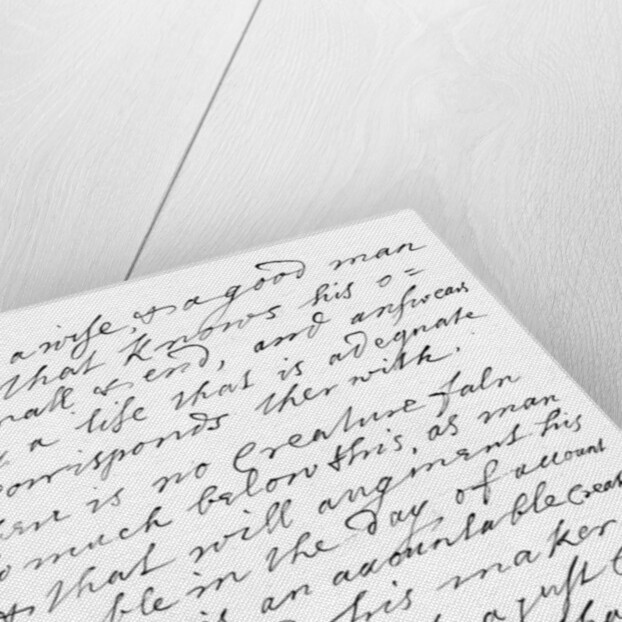 a wife, & a good man
that knows his o=
nall & end, and answears
a life that is adequate
corrisponds therwith.
is no Creature faln
much below this, as man
& that will augment his
ble in the day of account
is an accountable Creat
his maker
a just